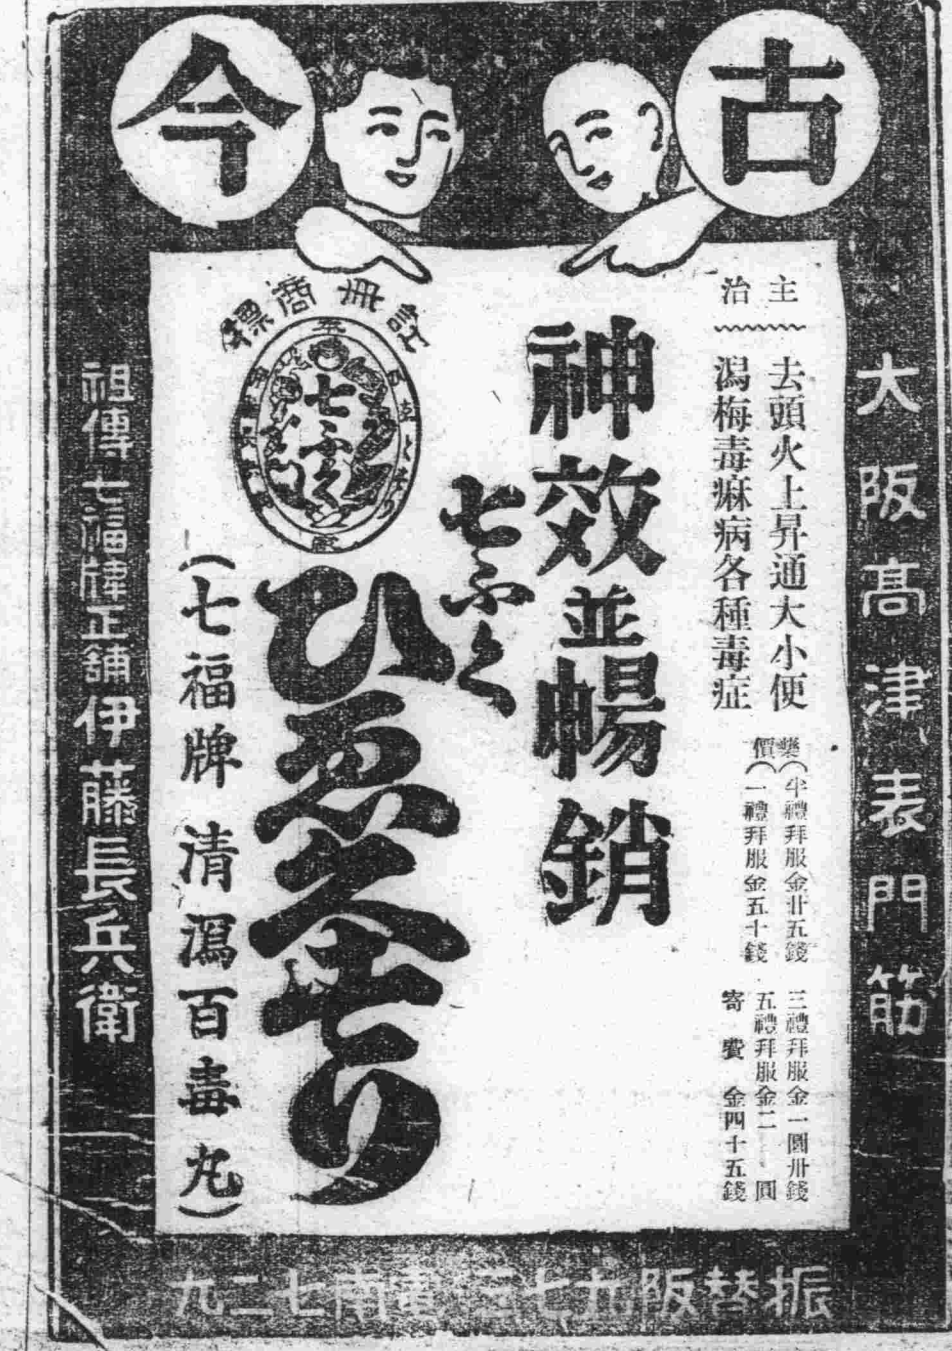 古
今
大阪高津表門筋
主治
去頭火上昇通大小便
瀉梅毒麻病各種毒症
藥價
半禮拜服金廿五錢
一禮拜服金五十錢
三禮拜服金一圓卅錢
五禮拜服金二圓
寄費金四十五錢
神效並暢銷
七ふく
ひゑぐすり
註冊商標
七ふく
(七福牌 清瀉百毒丸)
祖傳七福牌正舖伊藤長兵衛
振替阪九七三電南七二九